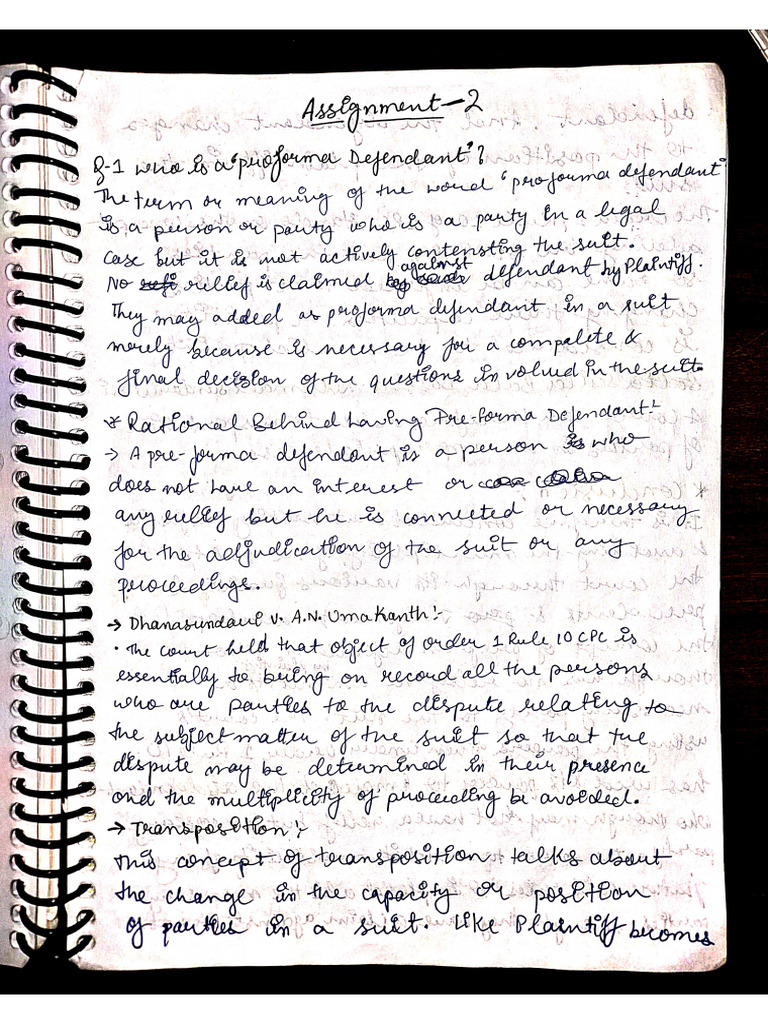 Assignment-2
Q-1 who is a "proforma Defendant"?
The term or meaning of the word "proforma defendant"
is a person or party who is a party in a legal
case but it is not actively contensting the suit.
No relief is claimed against defendant by Plaintiff.
They may added as proforma defendant in a suit
merely because is necessary for a complete &
final decision of the questions involved in the suit.
* Rational Behind having Pre-forma Defendant:-
→ A pre-forma defendant is a person who
does not have an interest or
any relief but he is connected or necessary
for the adjudication of the suit or any
proceedings.
→ Dhanasundari v. A.N. Umakanth:-
• The court held that object of order 1 Rule 10 CPC is
essentially to being on record all the persons
who are parties to the dispute relating to
the subject matter of the suit so that the
dispute may be determined in their presence
and the multiplicity of proceeding be avoided.
→ Transposition:-
This concept of transposition talks about
the change in the capacity or position
of parties in a suit. Like Plaintiff becomes